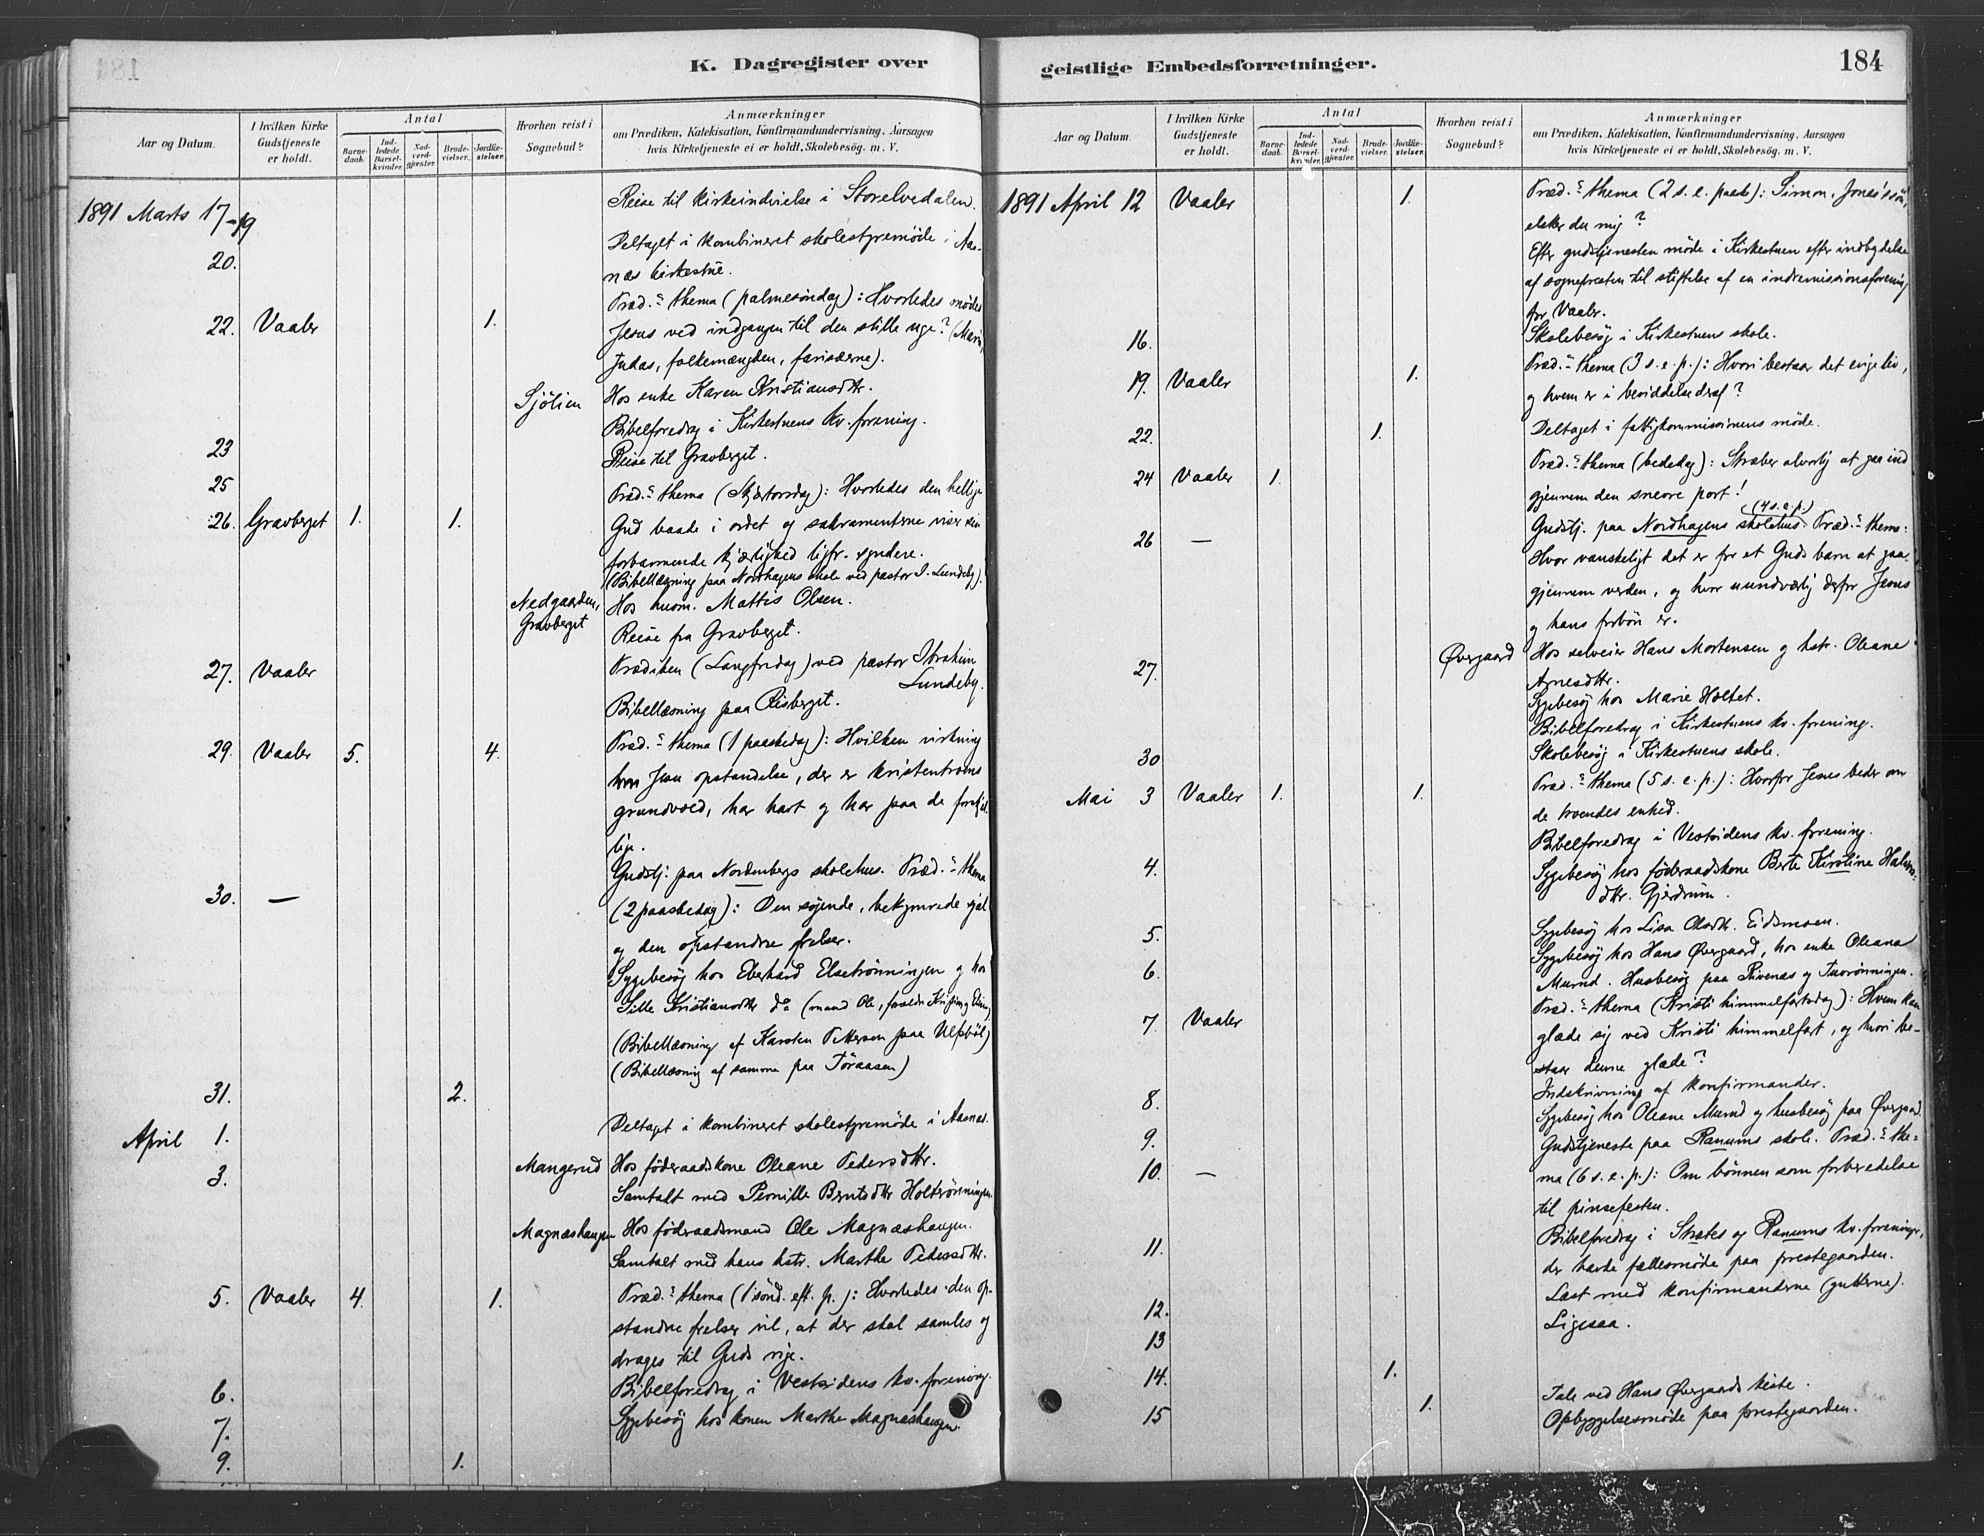 184
K. Dagregister over
Aar og Datum.
I hvilken Kirke Gudstjeneste er holdt.
Antal
Barne-daab.
Ind-ledede Barsel-kvinder.
Nad-verd-gjæster.
Brude-vielser.
Jordfæ-stelser.
Hvorhen reist i Sognebud?
Anmærkninger
om Prædiken, Katekisation, Konfirmandundervisning, Aarsagen
hvis Kirketjeneste ei er holdt, Skolebesøg. m. V.
1891 Marts 17-19 Reise til kirkeindvielse i Storelvedalen.
20. Deltaget i kombineret skolestyremøde i Aas-
næs kirkestue.
22. Vaaler 1. Præd.s thema (palmesøndag): Hvorledes mødes
Jesus ved indgangen til den stille uge? (Maria,
Judas, folkemængden, farisæerne).
Sjölien Hos enke Karen Kristiansdtr.
23 Bibelforedrag i Kirkestuens kv. forening.
25 Reise til Gravberget.
26. Gravberget 1. 1. Præd.s thema (Skjærtorsdag): Hvorledes den hellige
Gud baade i ordet og sakramenterne viser sin
forbarmende kjærlighed ligfr. syndere.
(Bibellæsning paa Nordhagens skole ved pastor I. Lundeby).
Nedgaarden, Gravberget Hos husm. Mattis Olsen.
Reise fra Gravberget.
27. Vaaler Prædiken (Langfredag) ved pastor Ibrahim
Lundeby.
Bibellæsning paa Risberget.
29. Vaaler 5. 4. Præd.s thema (1 paaskedag): Hvilken virkning
Jesu opstandelse, der er kristentroens
grundvold, har havt og har paa de forskjel-
lige.
30. — Gudstj. paa Nordenbergs skolehus. Præd.s thema
(2 paaskedag): Den søgende, bekymrede sjæl
og den opstandne frelser.
Sygebesøg hos Eberhard Elsetrønningen og hos
Sille Kristiansdtr do (mand Ole,
(Bibellæsning af Karsten Pettersen paa Ulfsbøl)
(Bibellæsning af samme paa Töraasen)
31. 2.
April 1. Deltaget i kombineret skolestyremøde i Aasnæs.
3. Mangerud Hos føderaadskone Oleane Pedersdtr.
Samtalt med Pernille Berntsdtr Holtrønningen.
Magnæshaugen Hos føderaadsmand Ole Magnæshaugen.
Samtalt med hans hstr. Marthe Pedersdtr.
5. Vaaler 4. 1. Præd.s thema (1 sønd. eft. p.): Hvorledes den op-
standne frelser vil, at der skal samles og
drages til Guds rige.
6. Bibelforedrag i Vestsidens kv. forening.
7. Sygebesøg hos konen Marthe Magnæshaugen.
9. 1.
geistlige Embedsforretninger.
184
Aar og Datum.
I hvilken Kirke Gudstjeneste er holdt.
Antal
Barne-daab.
Ind-ledede Barsel-kvinder.
Nad-verd-gjæster.
Brude-vielser.
Jordfæ-stelser.
Hvorhen reist i Sognebud?
Anmærkninger
om Prædiken, Katekisation, Konfirmandundervisning, Aarsagen
hvis Kirketjeneste ei er holdt, Skolebesøg. m. V.
1891 April 12 Vaaler 1. Præd.s thema (2 s. e. paaske): Simon, Jonas's søn,
elsker du mig?
Efter gudstjenesten møde i Kirkestuen efter indbydelse
af sognepresten til stiftelse af en indremissionsforening
for Vaaler.
16. Skolebesøg i Kirkestuens skole.
19. Vaaler 1. Præd.s thema (3 s. e. p.): Hvori bestaar det evige liv,
og hvem er i besiddelse deraf?
22. 1. Deltaget i fattigkommissionens møde.
24 Vaaler 1. Præd.s thema (bededag): Stræber alvorlig at gaa ind
gjennem den snevre port!
(4 s. e. p.)
26 — Gudstj. paa Nordhagens skolehus. Præd.s thema:
Hvor vanskeligt det er for et Guds barn at gaa
gjennem verden, og hvor uundværlig derfor Jesus
og hans forbøn er.
27. Øvergaard Hos selveier Hans Mortensen og hstr. Oleane
Arnesdtr.
Sygebesøg hos Marie Holtet.
Bibelforedrag i Kirkestuens kv. forening.
30 Skolebesøg i Kirkestuens skole.
Mai 3 Vaaler 1. 1. Præd.s thema (5 s. e. p.): Hvorfor Jesus beder om
de troendes enhed.
Bibelforedrag i Vestsidens kv. forening.
4. Sygebesøg hos føderaadskone Berte Kirstine Halvors-
dtr. Gjerdrum.
5. Sygebesøg hos Lisa Olsdtr. Eidsmoen.
6. Sygebesøg hos Hans Øvergaard, hos enke Oleana
Husbesøg paa Rivenæs og
7 Vaaler Præd.s thema (Kristi himmelfartsdag): Hvem kan
glæde sig ved Kristi himmelfart, og hvori be-
staar denne glæde?
8. Indskrivning af konfirmander.
9. Sygebesøg hos Oleane og husbesøg paa Øvergaard.
10. — Gudstjeneste paa Ranums skole. Præd.s the-
ma (6 s. e. p.): Om bønnen som forberedelse
til pinsefesten.
11. Bibelforedrag i Strætes og Ranums kv. foreninger,
der havde fællesmøde paa prestegaarden.
12. Læst med konfirmanderne (gutterne).
13 Ligesaa.
14. 1.
15 1. Tale ved Hans Øvergaards kiste.
Opbyggelsesmøde paa prestegaarden.